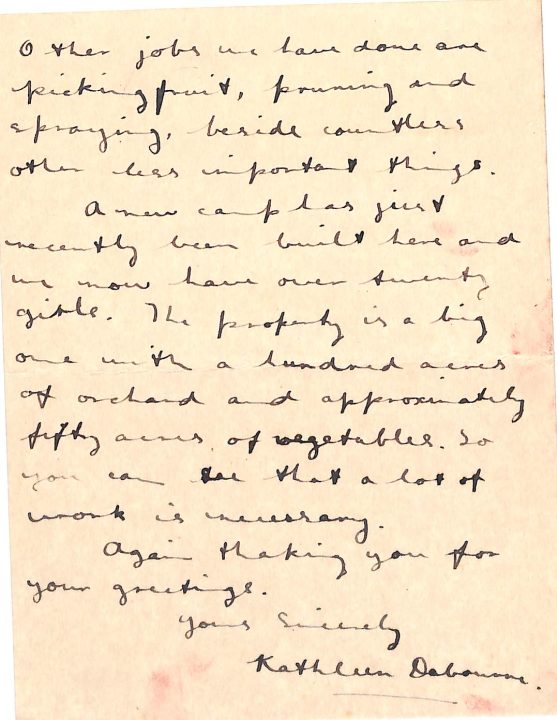 Other jobs we have done are
picking fruit, pruning and
spraying, beside countless
other less important things.
A new camp has just
recently been built here and
we now have over twenty
girls. The property is a big
one with a hundred acres
of orchard and approximately
fifty acres of vegetables. So
you can see that a lot of
work is necessary.
Again thaking you for
your greetings.
Yours Sincerely
Kathleen